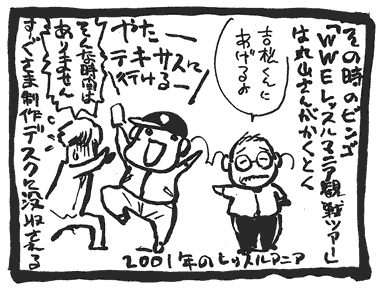 その時のビンゴ
「WWEレッスルマニア観戦ツアー」
は丸山さんがかくとく
吉松くんに
あげるよ
やたー
テキサスに
行けるー
そんな時間は
ありません
すぐさま制作デスクに没収さる
2001年のレッスルマニア